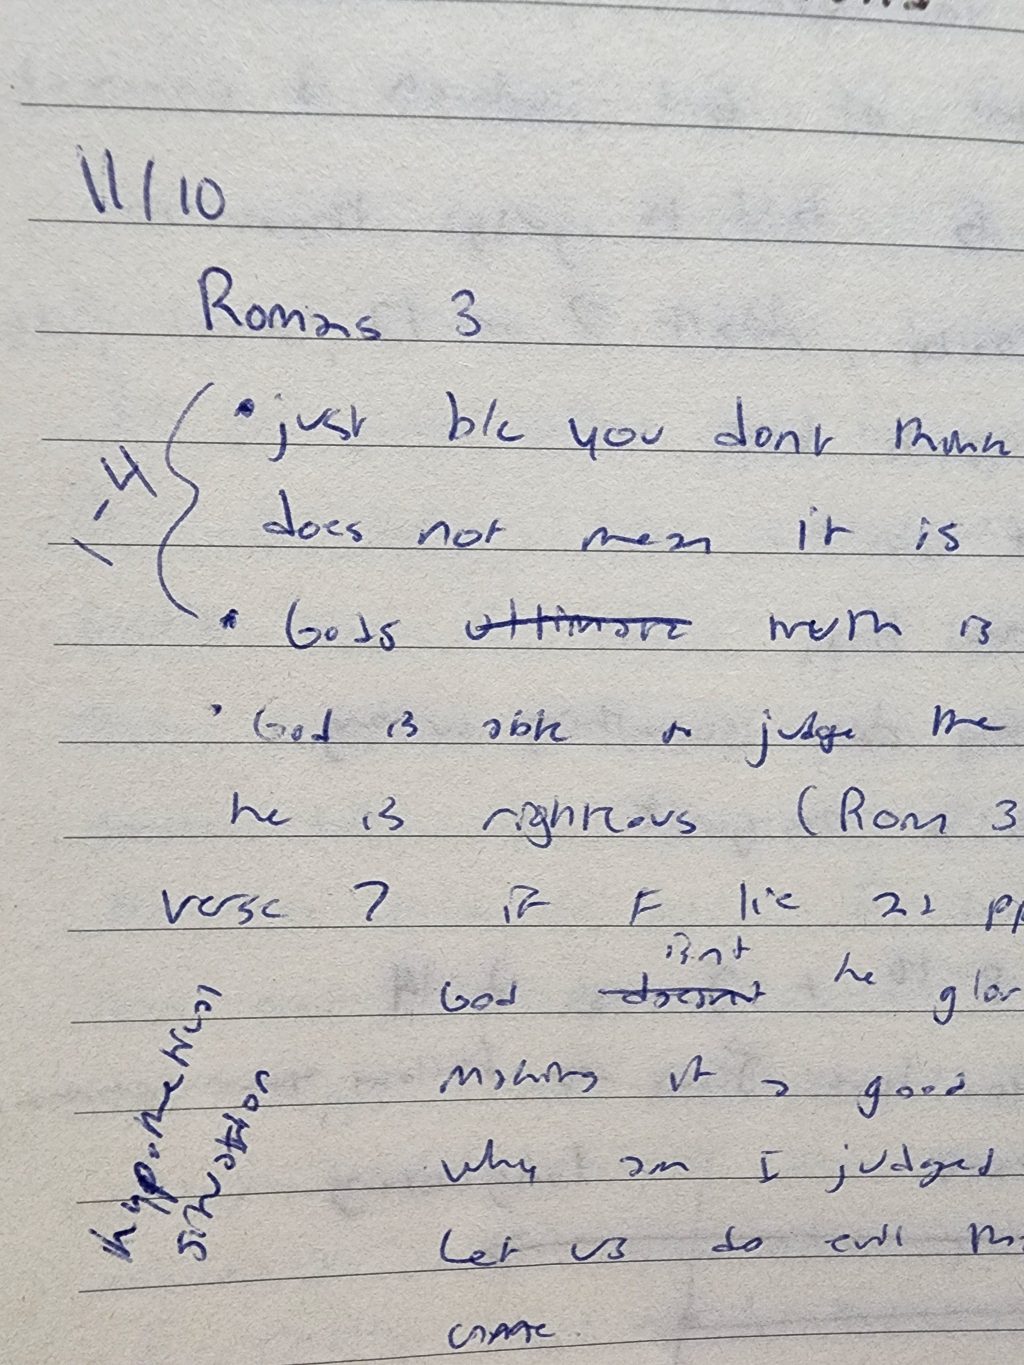 11/10
Romans 3
1-4
• just b/c you dont think
does not mean it is
• Gods ultimate truth is
• God is able to judge the
he is righteous (Rom 3
verse 7 if I lie
God doesnt isnt he glor
making it a good
why am I judged
Let us do evil
hypothetical
situation